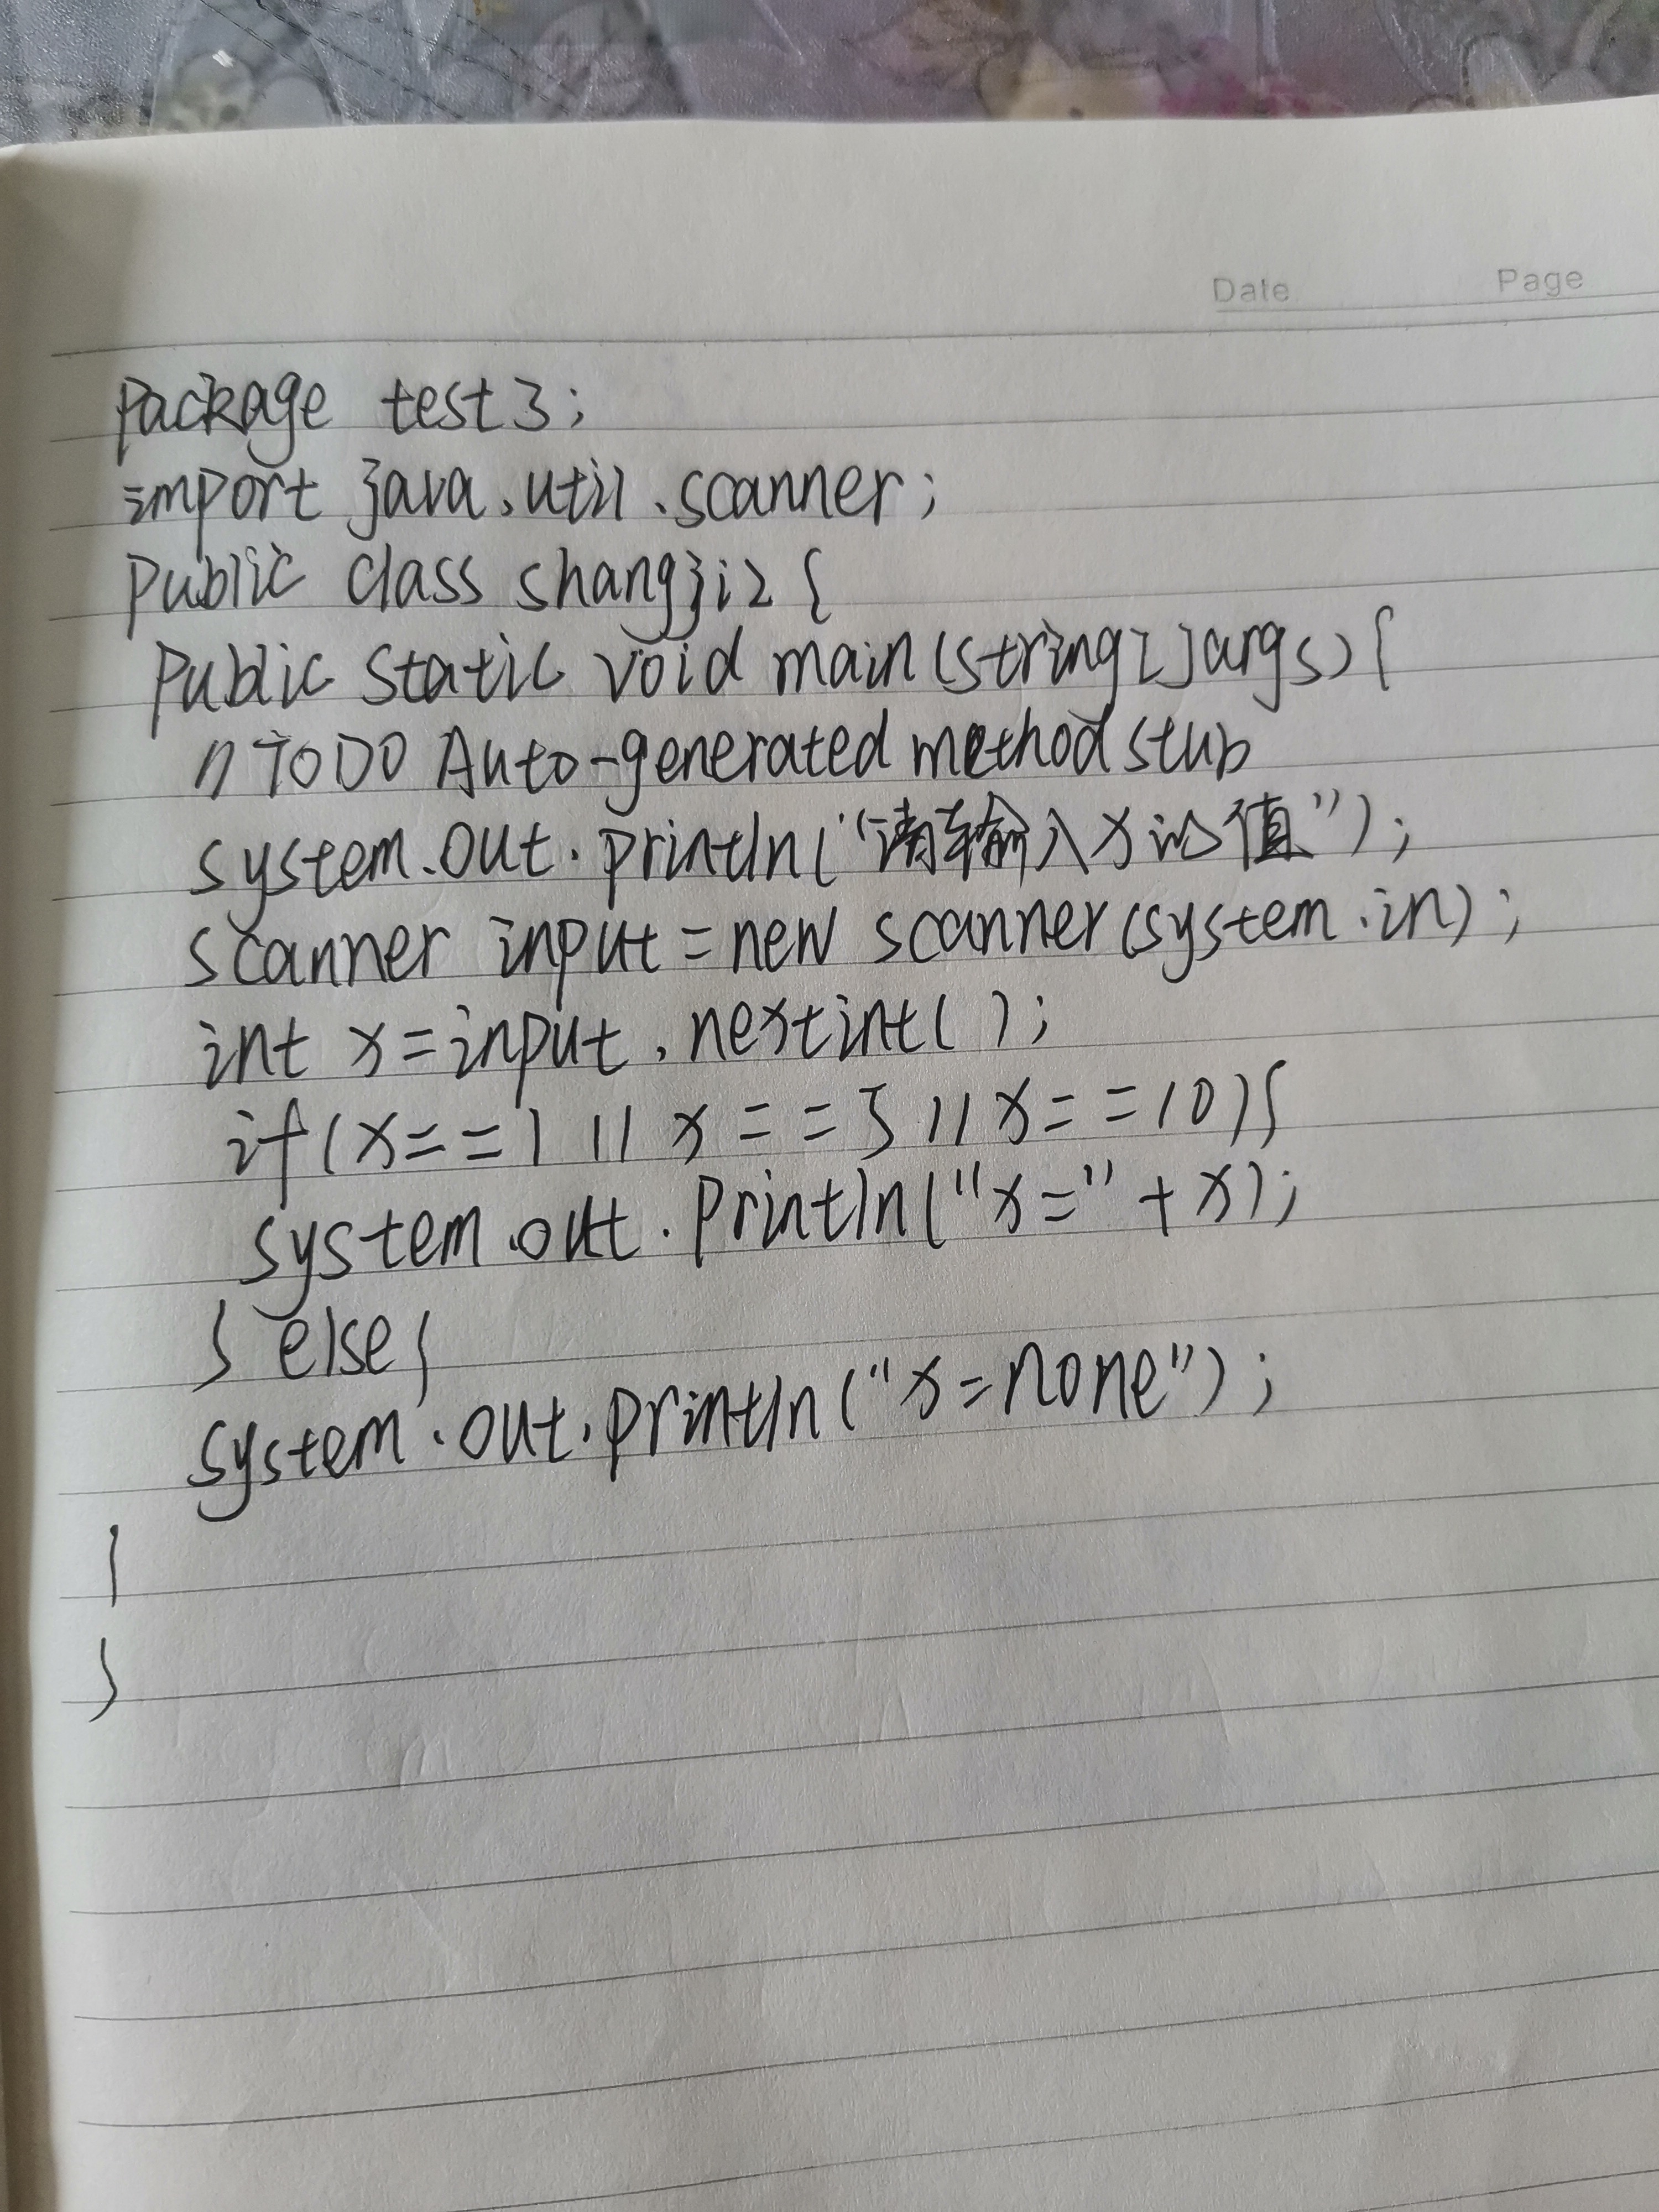 Date Page
package test3;
import java.util.scanner;
public class shangji2{
public static void main(string[]args){
//TODO Auto-generated method stub
system.out.println("请输入x的值");
scanner input=new scanner(system.in);
int x=input.nextint();
if(x==1||x==5||x==10){
system.out.println("x="+x);
}else{
system.out.println("x=none");
}
}